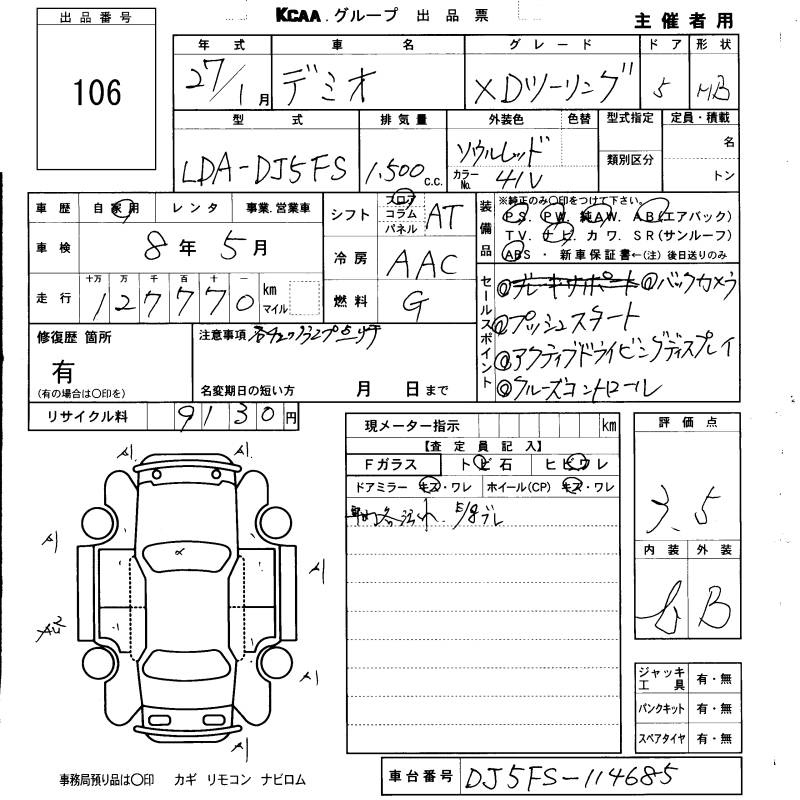 出品番号
106
KCAA.グループ 出品票
主催者用
年式 車名 グレード ドア 形状
27/1月 デミオ XDツーリング 5 HB
型式 排気量 外装色 色替 型式指定 定員・積載
LDA-DJ5FS 1,500 c.c. ソウルレッド 名
カラーNo. 41V 類別区分 トン
車歴 自家用 レンタ 事業.営業車
車検 8年 5月
走行 十万 万 千 百 十 一 km マイル
127770
シフト フロア コラム パネル AT
冷房 AAC
燃料 G
装備品 ※純正のみ〇印をつけて下さい。
PS. PW. 純AW. AB(エアバック)
TV. ナビ. カワ. SR(サンルーフ)
ABS ・ 新車保証書←(注) 後日送りのみ
セールスポイント
ブレーキサポート バックカメラ
プッシュスタート
アクティブドライビングディスプレイ
クルーズコントロール
修復歴 箇所
有
(有の場合は〇印を)
注意事項
名変期日の短い方 月 日まで
リサイクル料 9130円
現メーター指示 km
【査定員記入】
Fガラス トビ石 ヒビワレ
ドアミラー キズ・ワレ ホイール(CP) キズ・ワレ
評価点
3.5
内装 外装
B
ジャッキ工具 有・無
パンクキット 有・無
スペアタイヤ 有・無
A1
A1
A1
A1
A1
A1
事務局預り品は〇印 カギ リモコン ナビロム
車台番号 DJ5FS-114685